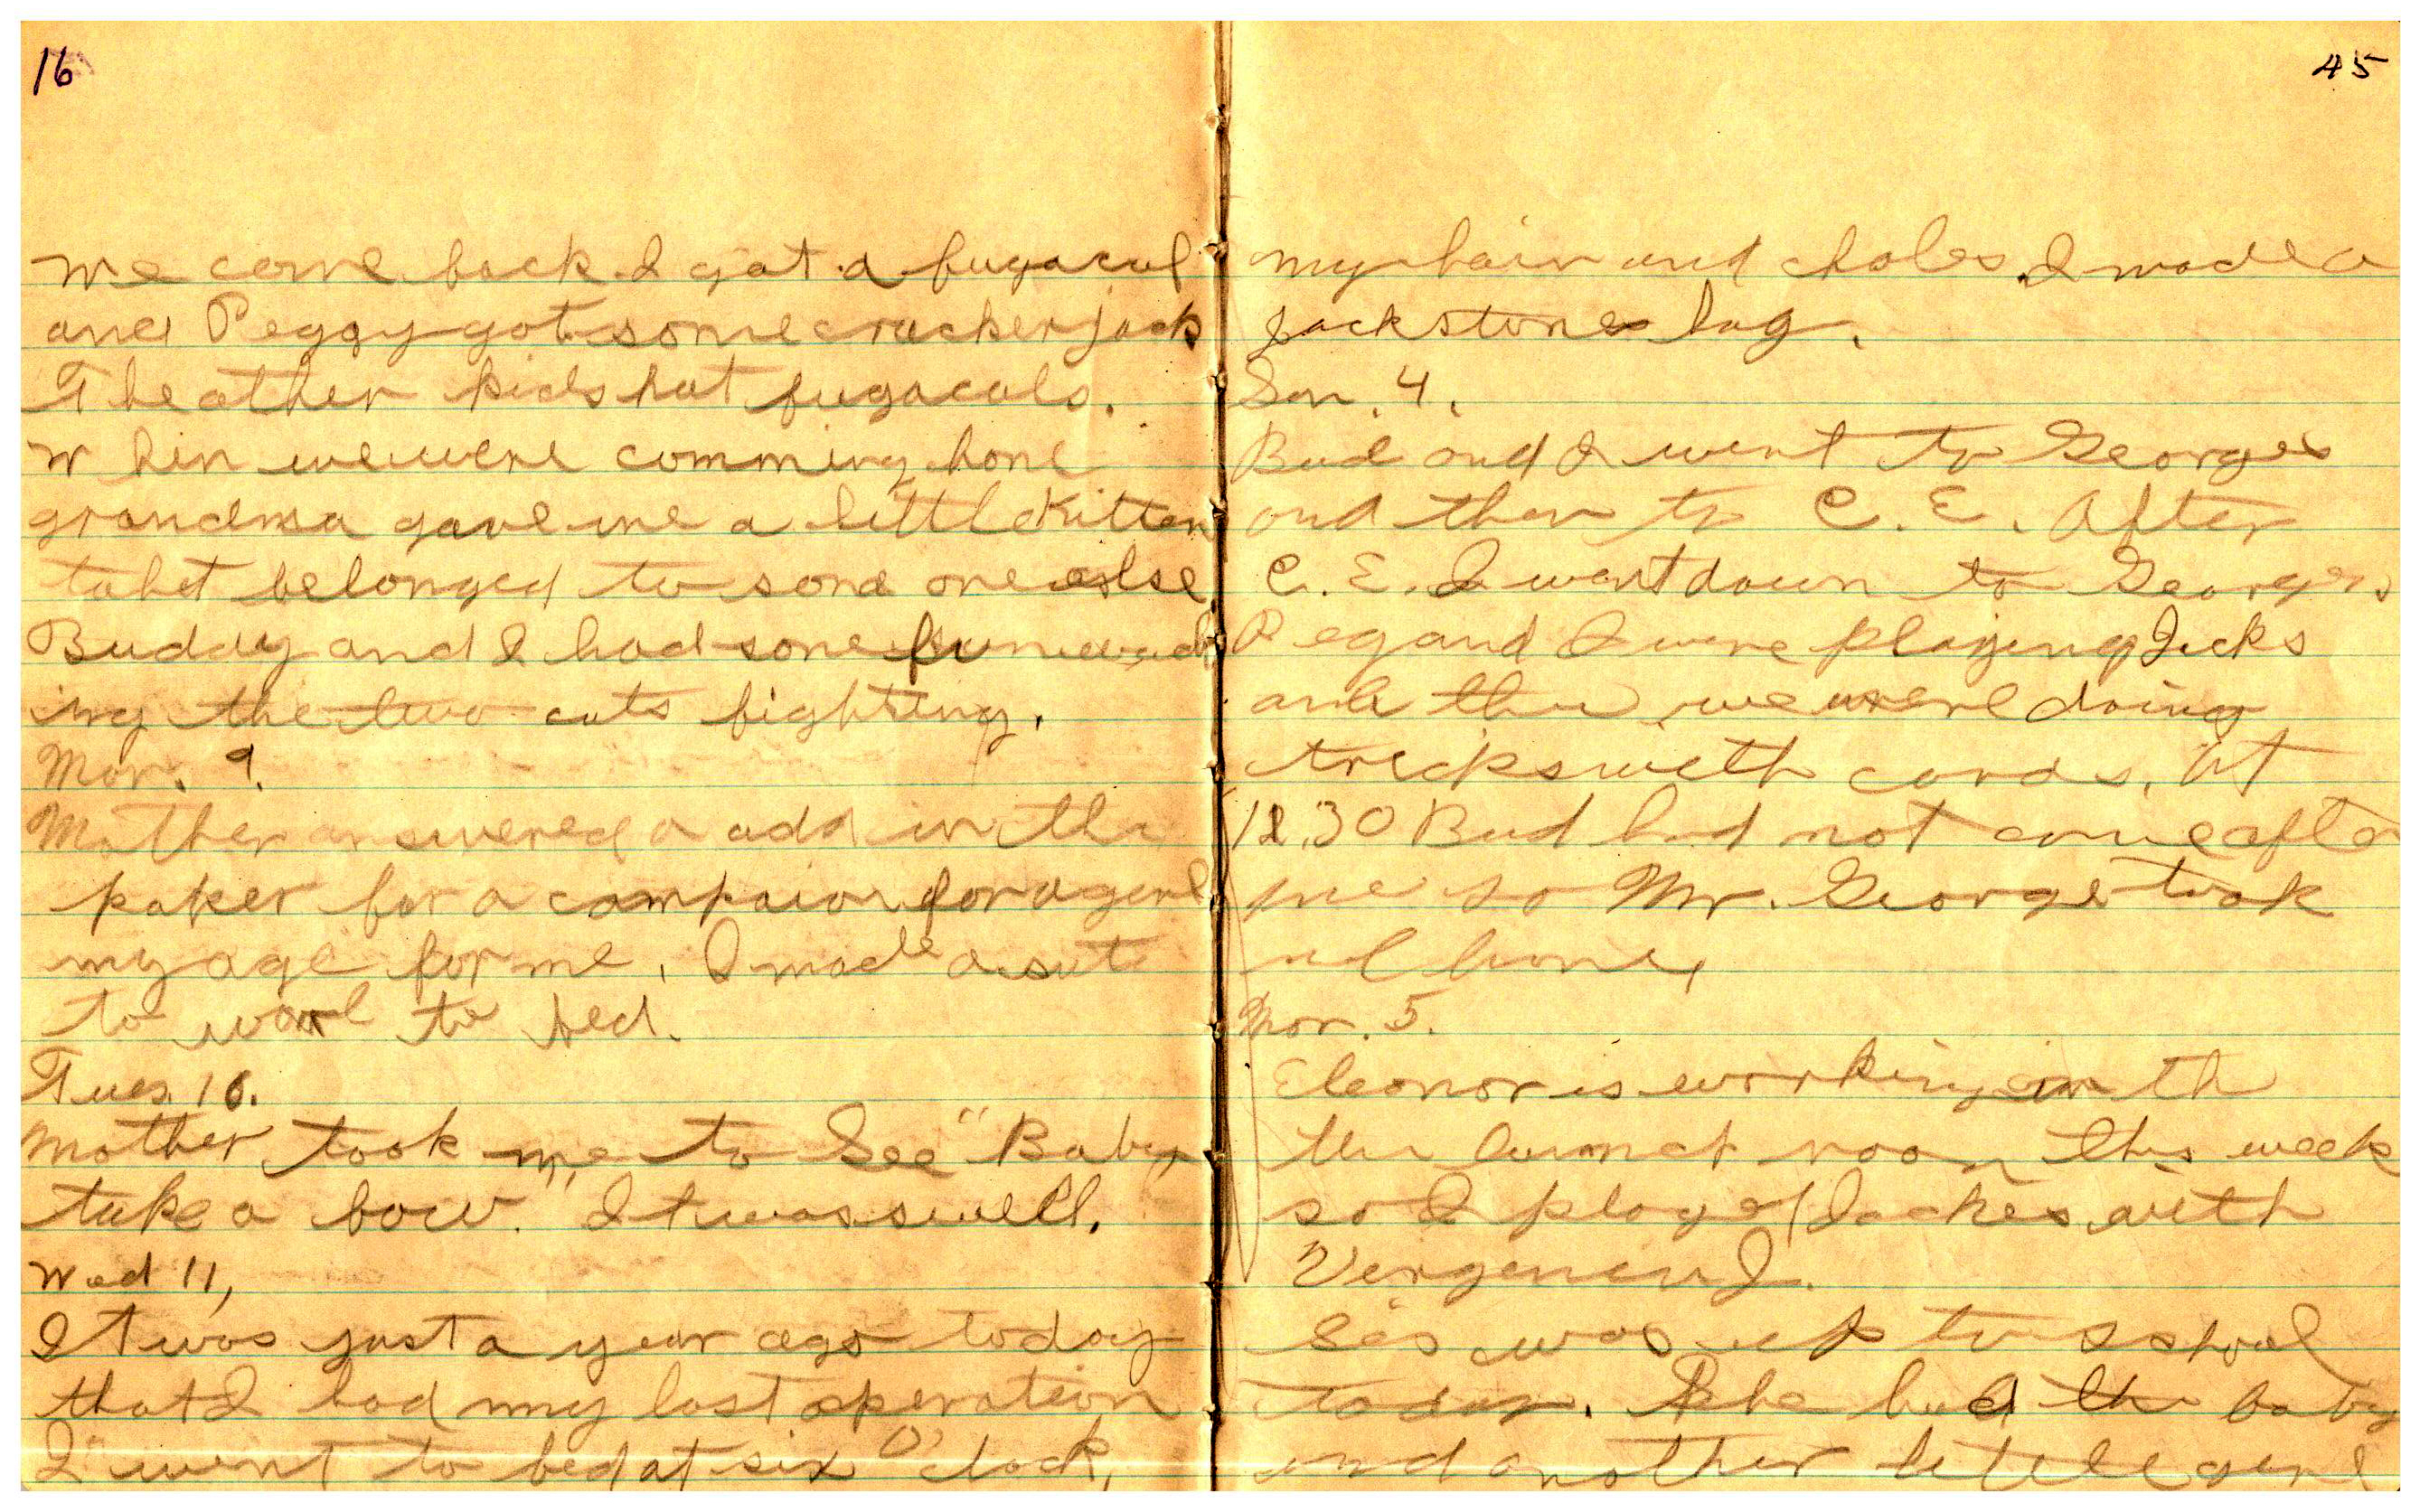 16
We come back I got a fugacul
and Peggy got some cracker jack
The other kids hat fugaculs.
W hen we were comming hone
grandma gave me a little Kitten
taht belonged to sone one else
Buddy and I had sone fun wach
ing the two cats fighting.
Mon. 9.
Mother answered a add in the
paper for a compaion for a gerl
my age for me. I made a sut
to ware to bed.
Tues. 10.
Mother took me to See "Baby
take a bow." It was swell.
Wed 11,
It was just a year ago today
that I had my last operation
I went to bed at six O'clock,
45
my hair and I made a
Jackstones bag.
Son. 4.
Bud and I went to Georges
and then to C. E. After
C. E. I went down to Georges
Peg and I were playing Jacks
and then we were doing
tricks with cards. At
12.30 Bud had not come after
me so Mr. George took
me home,
Mon. 5.
Eleonor is working in th
the room this week
so I played Jackes with

Sis was up to school
today. She had the baby
and another little gerl